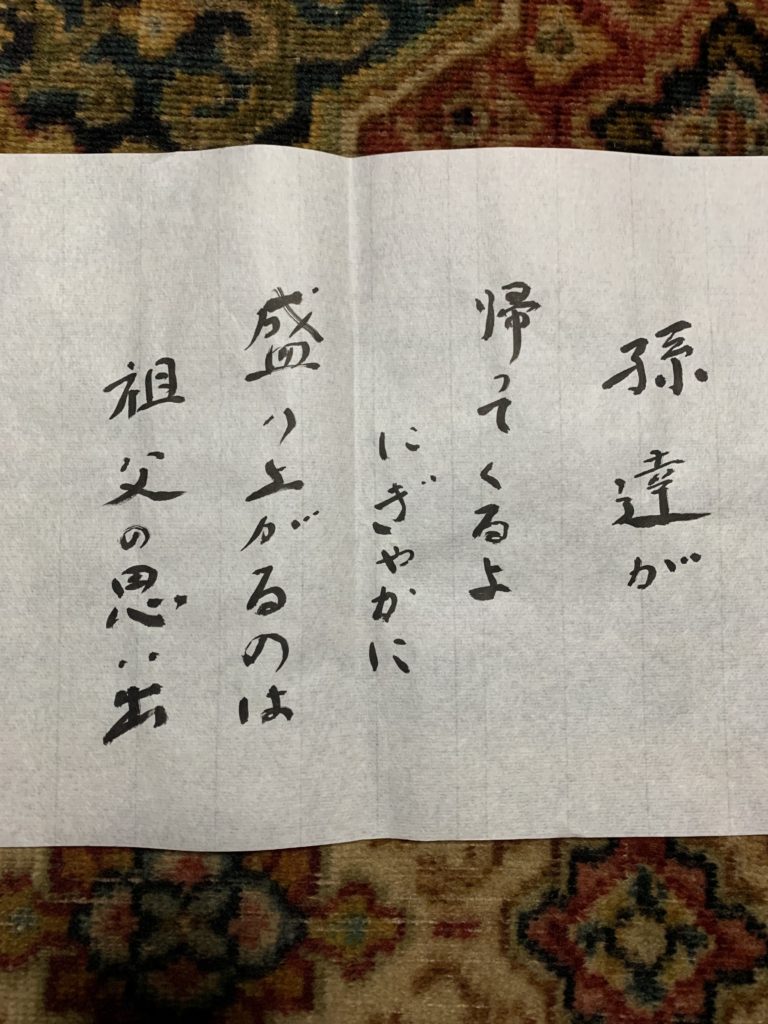 孫達が
帰ってくるよ
にぎやかに
盛り上がるのは
祖父の思い出